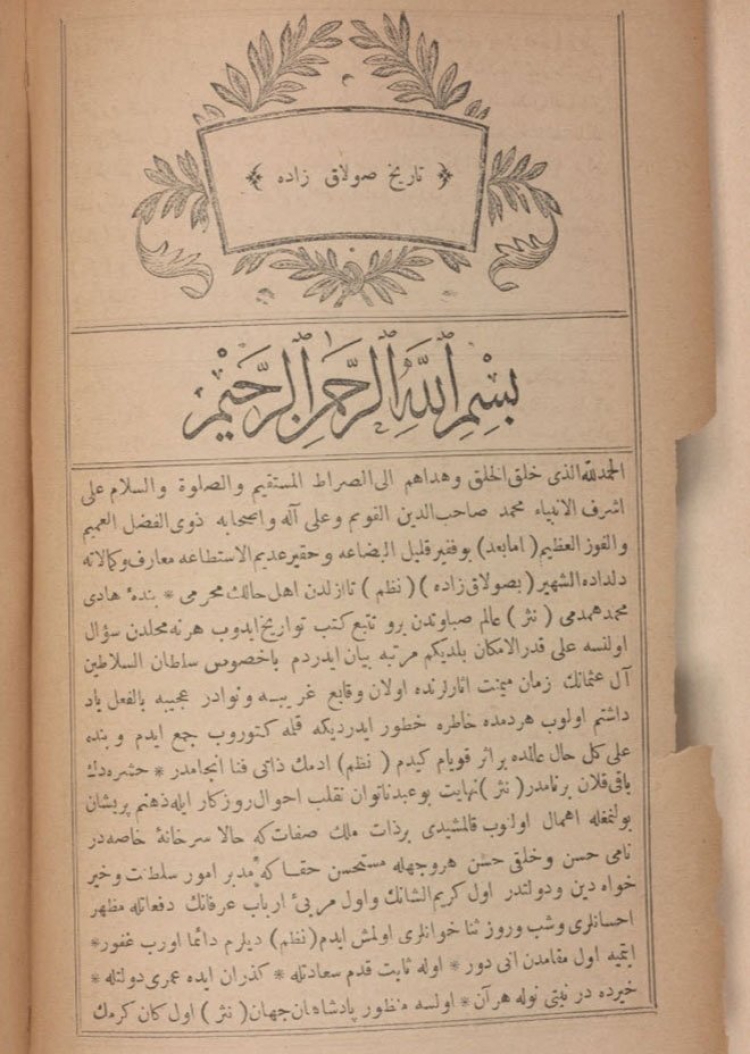 تاريخ صولاق زاده
بِسْمِ اللَّهِ الرَّحْمَنِ الرَّحِيمِ
الحمدلله الذى خلق الخلق وهداهم الى الصراط المستقيم والصلوة والسلام على
اشرف الانبياء محمد صاحب الدين القويم وعلى آله واصحابه ذوى الفضل العميم
والفوز العظيم ( امابعد ) بوفقير قليل البضاعه وحقير عديم الاستطاعه معارف وكمالاته
دلداده الشهير ( بصولاق زاده ) ( نظم ) تاازلدن اهل حالك محرمى * بندهٔ هادى
محمد همدمى ( نثر ) عالم صباوتدن برو تتبع كتب تواريخ ايدوب هر نه محلدن سؤال
اولنسه على قدر الامكان بلديكم مرتبه بيان ايدردم باخصوص سلطان السلاطين
آل عثمانك زمان ميمنت اثارلرنده اولان وقايع غريبه ونوادر عجيبه بالفعل ياد
داشتم اولوب هر دمده خاطره خطور ايدرديكه قلمه كتوروب جمع ايدم وبنده
على كل حال عالمده براثر قويام كيدم ( نظم ) ادمك ذاتى فنا انجامدر * حشره دك
باقى قلان برنامدر ( نثر ) نهايت بوعبد ناتوان تقلب احوال روزكار ايله ذهنم پريشان
بولنمغله اهمال اولنوب قالمشيدى برذات ملك صفات كه حالا سرخانهٔ خاصه در
نامى حسن وخلقى حسن هروجهله مستحسن حقا كه مدبر امور سلطنت وخير
خواه دين ودولتدر اول كريم الشانك واول مربىٔ ارباب عرفانك دفعاتله مظهر
احسانلرى وشب وروز ثنا خوانلرى اولمش ايدم ( نظم ) ديلرم دائما اورب غفور *
ايتميه اول مقامدن انى دور * اوله ثابت قدم سعادتله * كذران ايده عمرى دولتله *
خيرده در نيتى نوله هرآن * اولسه منظور پادشاهان جهان ( نثر ) اول كان كرمك